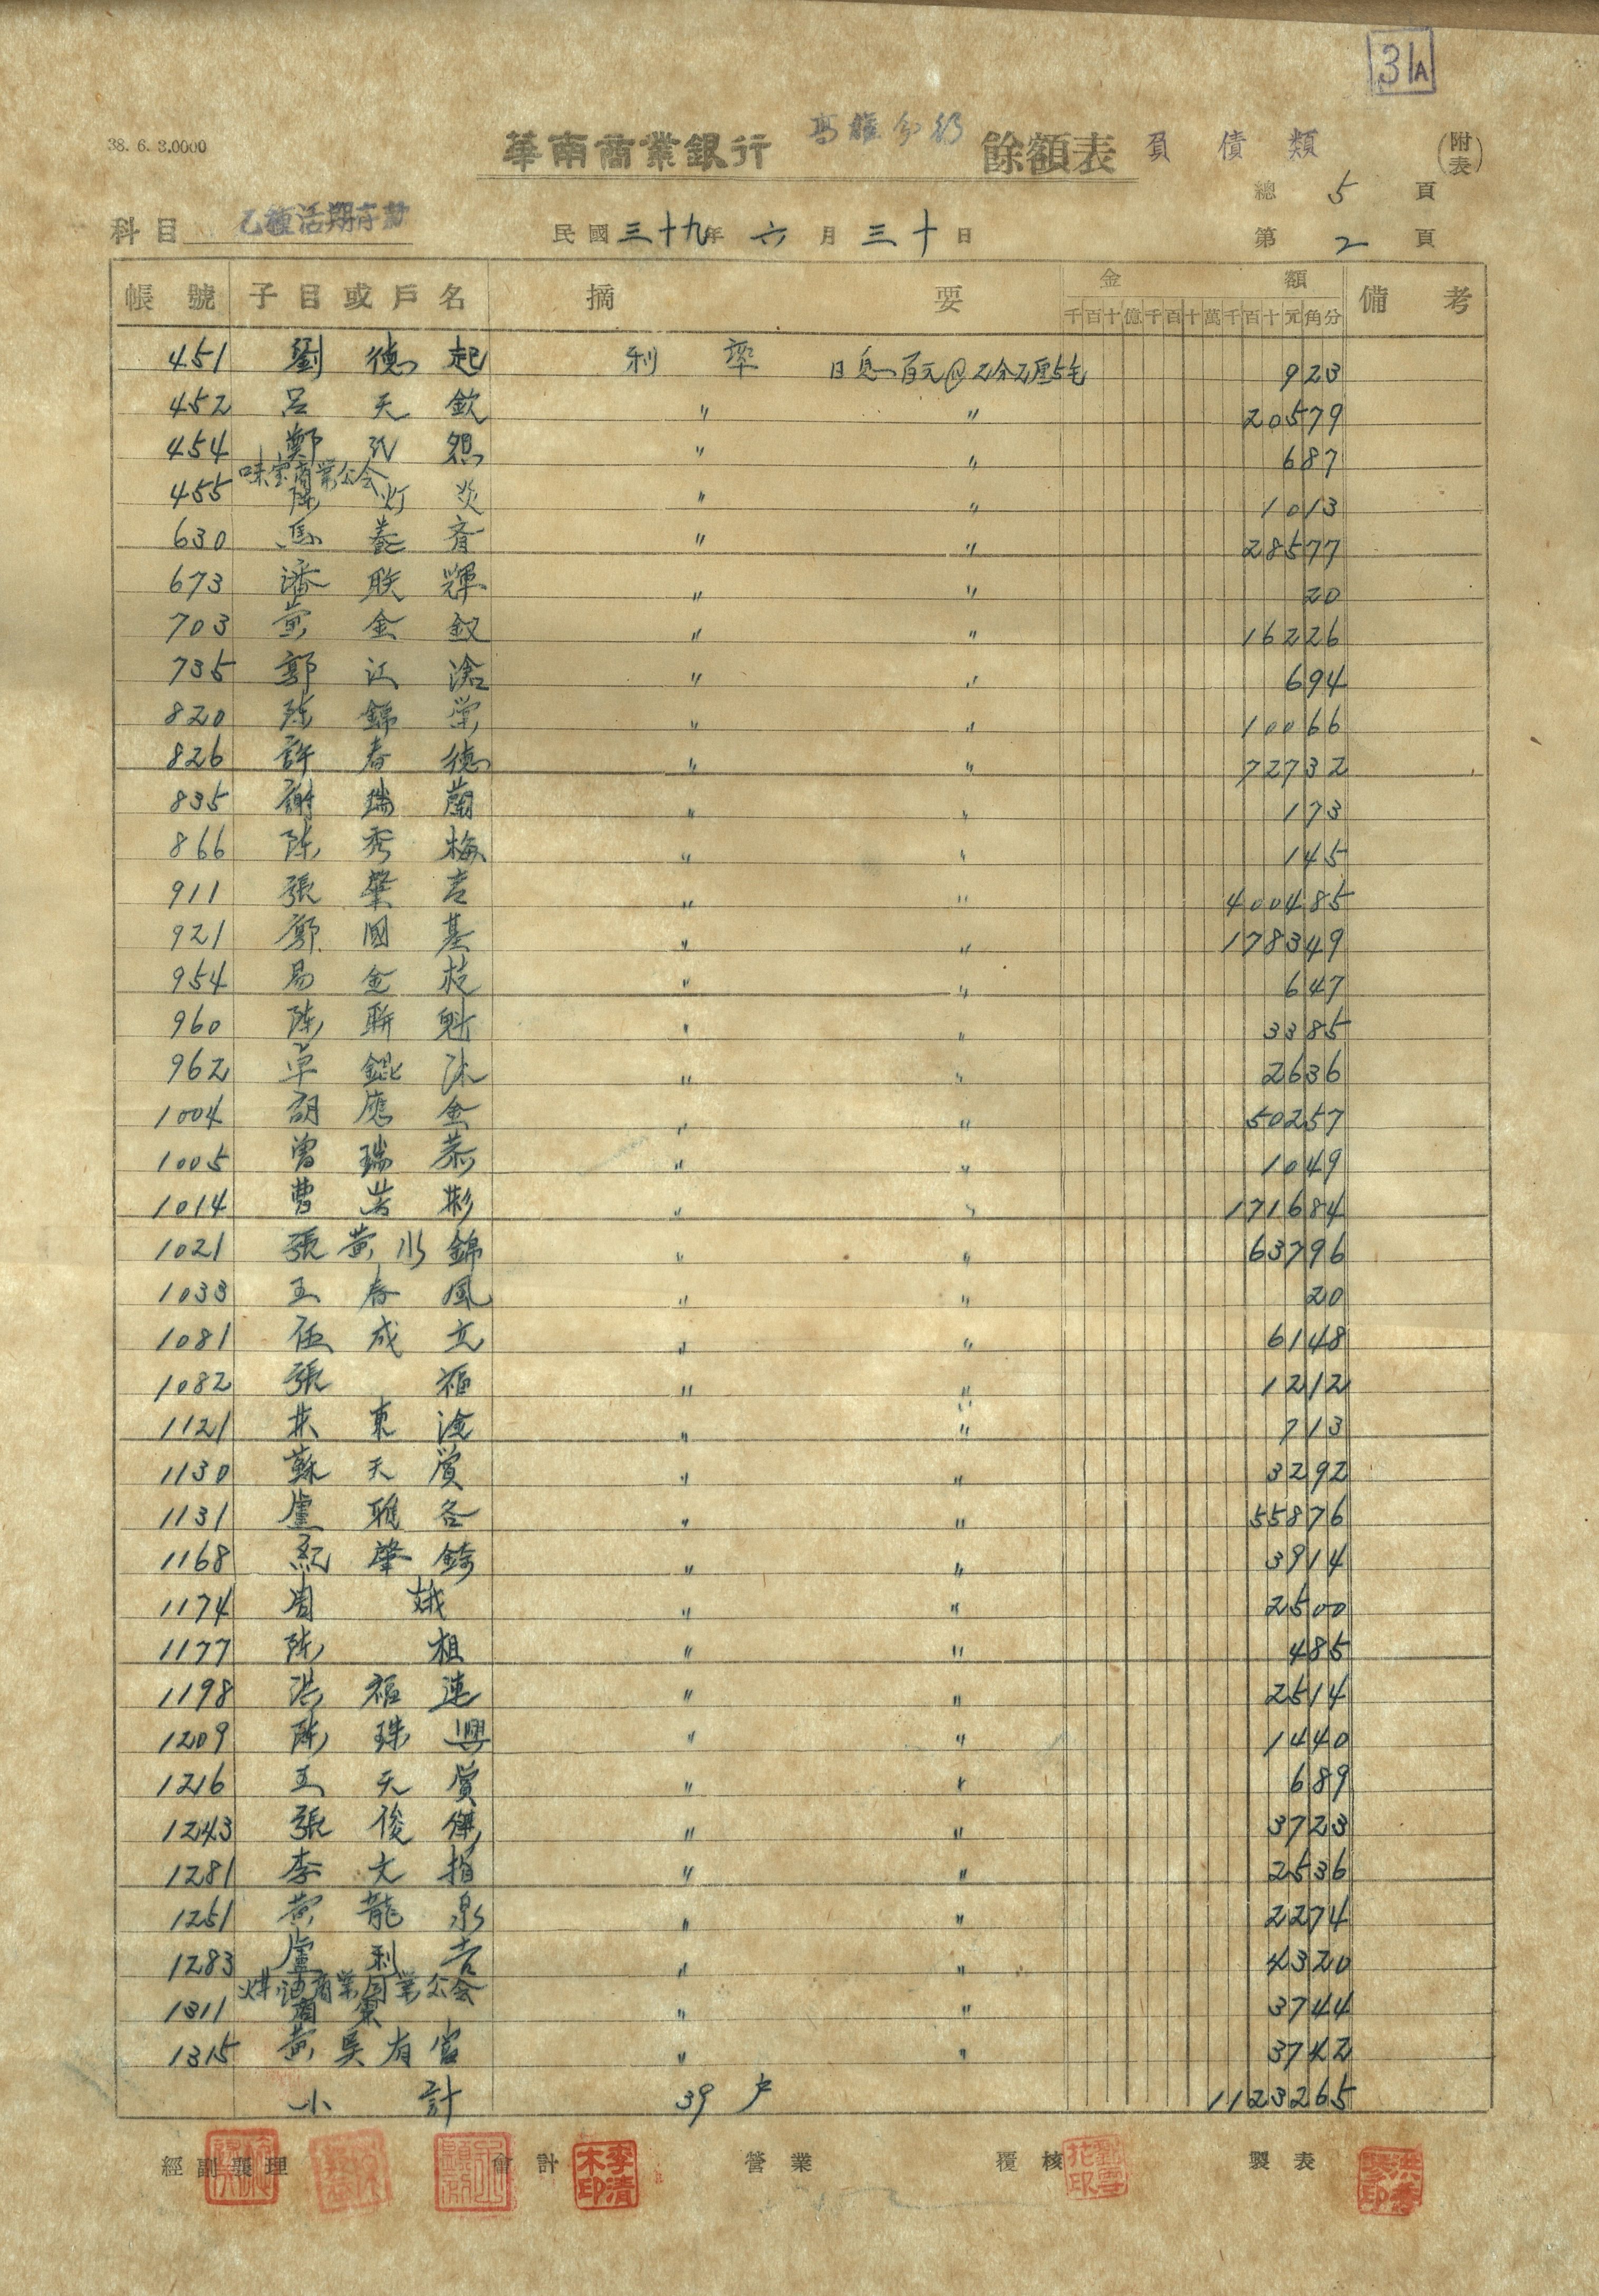 31A
38. 6. 3.0000
華南商業銀行 高雄分行 餘額表 負債類 (附表)
總 5 頁
科目 乙種活期存款 民國三十九年 六月三十日 第 2 頁
帳號 子目或戶名 摘要 金額 備考
千百十億千百十萬千百十元角分
451 劉德起 利率 日息百元@乙分乙厘5毛 923
452 呂天欽 〃 〃 20579
454 鄭 〃 〃 687
455 陳灯炎 〃 〃 1013
630 馬養齊 〃 〃 28577
673 潘联輝 〃 〃 20
703 黄金釵 〃 〃 16226
735 郭江滄 〃 〃 694
820 陈錦榮 〃 〃 10066
826 許春德 〃 〃 72732
835 謝瑞蘭 〃 〃 173
866 陈秀梅 〃 〃 145
911 張肇 〃 〃 400485
921 鄭國基 〃 〃 178349
954 易金枝 〃 〃 647
960 陈聯魁 〃 〃 3385
962 卓 〃 〃 2636
1004 胡應金 〃 〃 50257
1005 曾瑞恭 〃 〃 1049
1014 曹 彬 〃 〃 171684
1021 張黄 錦 〃 〃 63796
1033 王春風 〃 〃 20
1081 伍成立 〃 〃 6148
1082 張福 〃 〃 1212
1121 林東 〃 〃 713
1130 蘇天賞 〃 〃 3292
1131 盧雅各 〃 〃 55876
1168 紀肇錡 〃 〃 3914
1174 周娥 〃 〃 2500
1177 陈祖 〃 〃 485
1198 洪福連 〃 〃 2514
1209 陈珠興 〃 〃 1440
1216 王天賞 〃 〃 689
1243 張俊傑 〃 〃 3723
1281 李文指 〃 〃 2536
1251 黄龍泉 〃 〃 2274
1283 盧利吉 〃 〃 4320
煤油商業同業公会
1311 〃 〃 3744
1315 黄吳有富 〃 〃 3742
小計 39戶 1123265
經副襄理 會計 李清木印 營業 覆核 製表